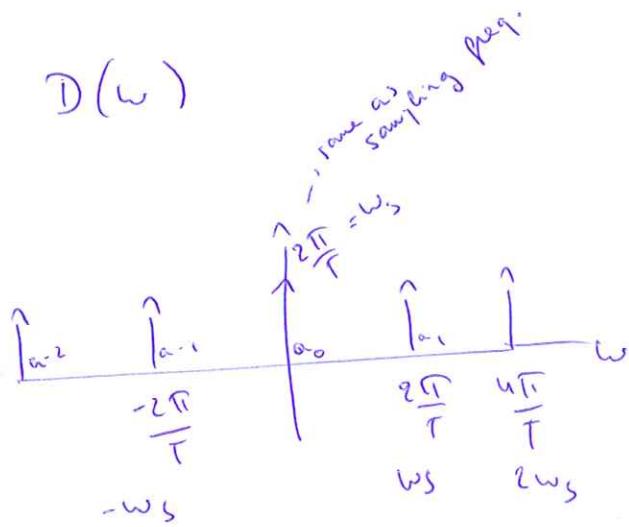 D(ω)
same as
sampling freq.
2π/T = ωs
a-2 a-1 a0 a1 ω
-2π/T 2π/T 4π/T
-ωs ωs 2ωs